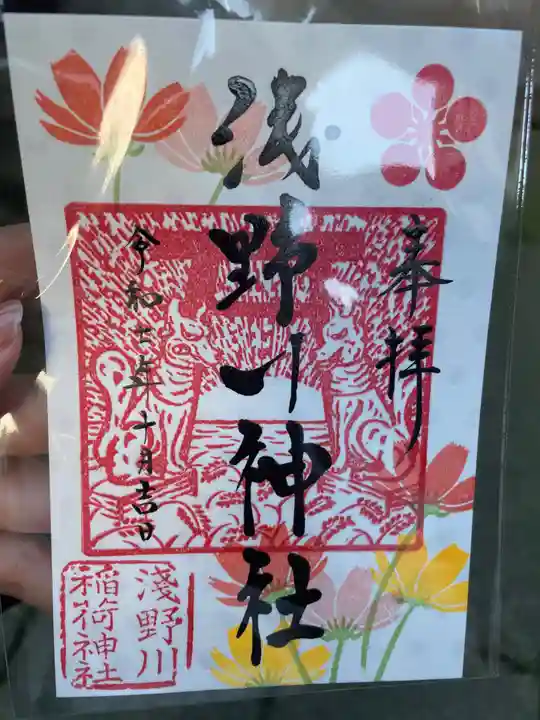 奉拝
浅野川神社
令和二年十月吉日
淺野川
稲荷神社